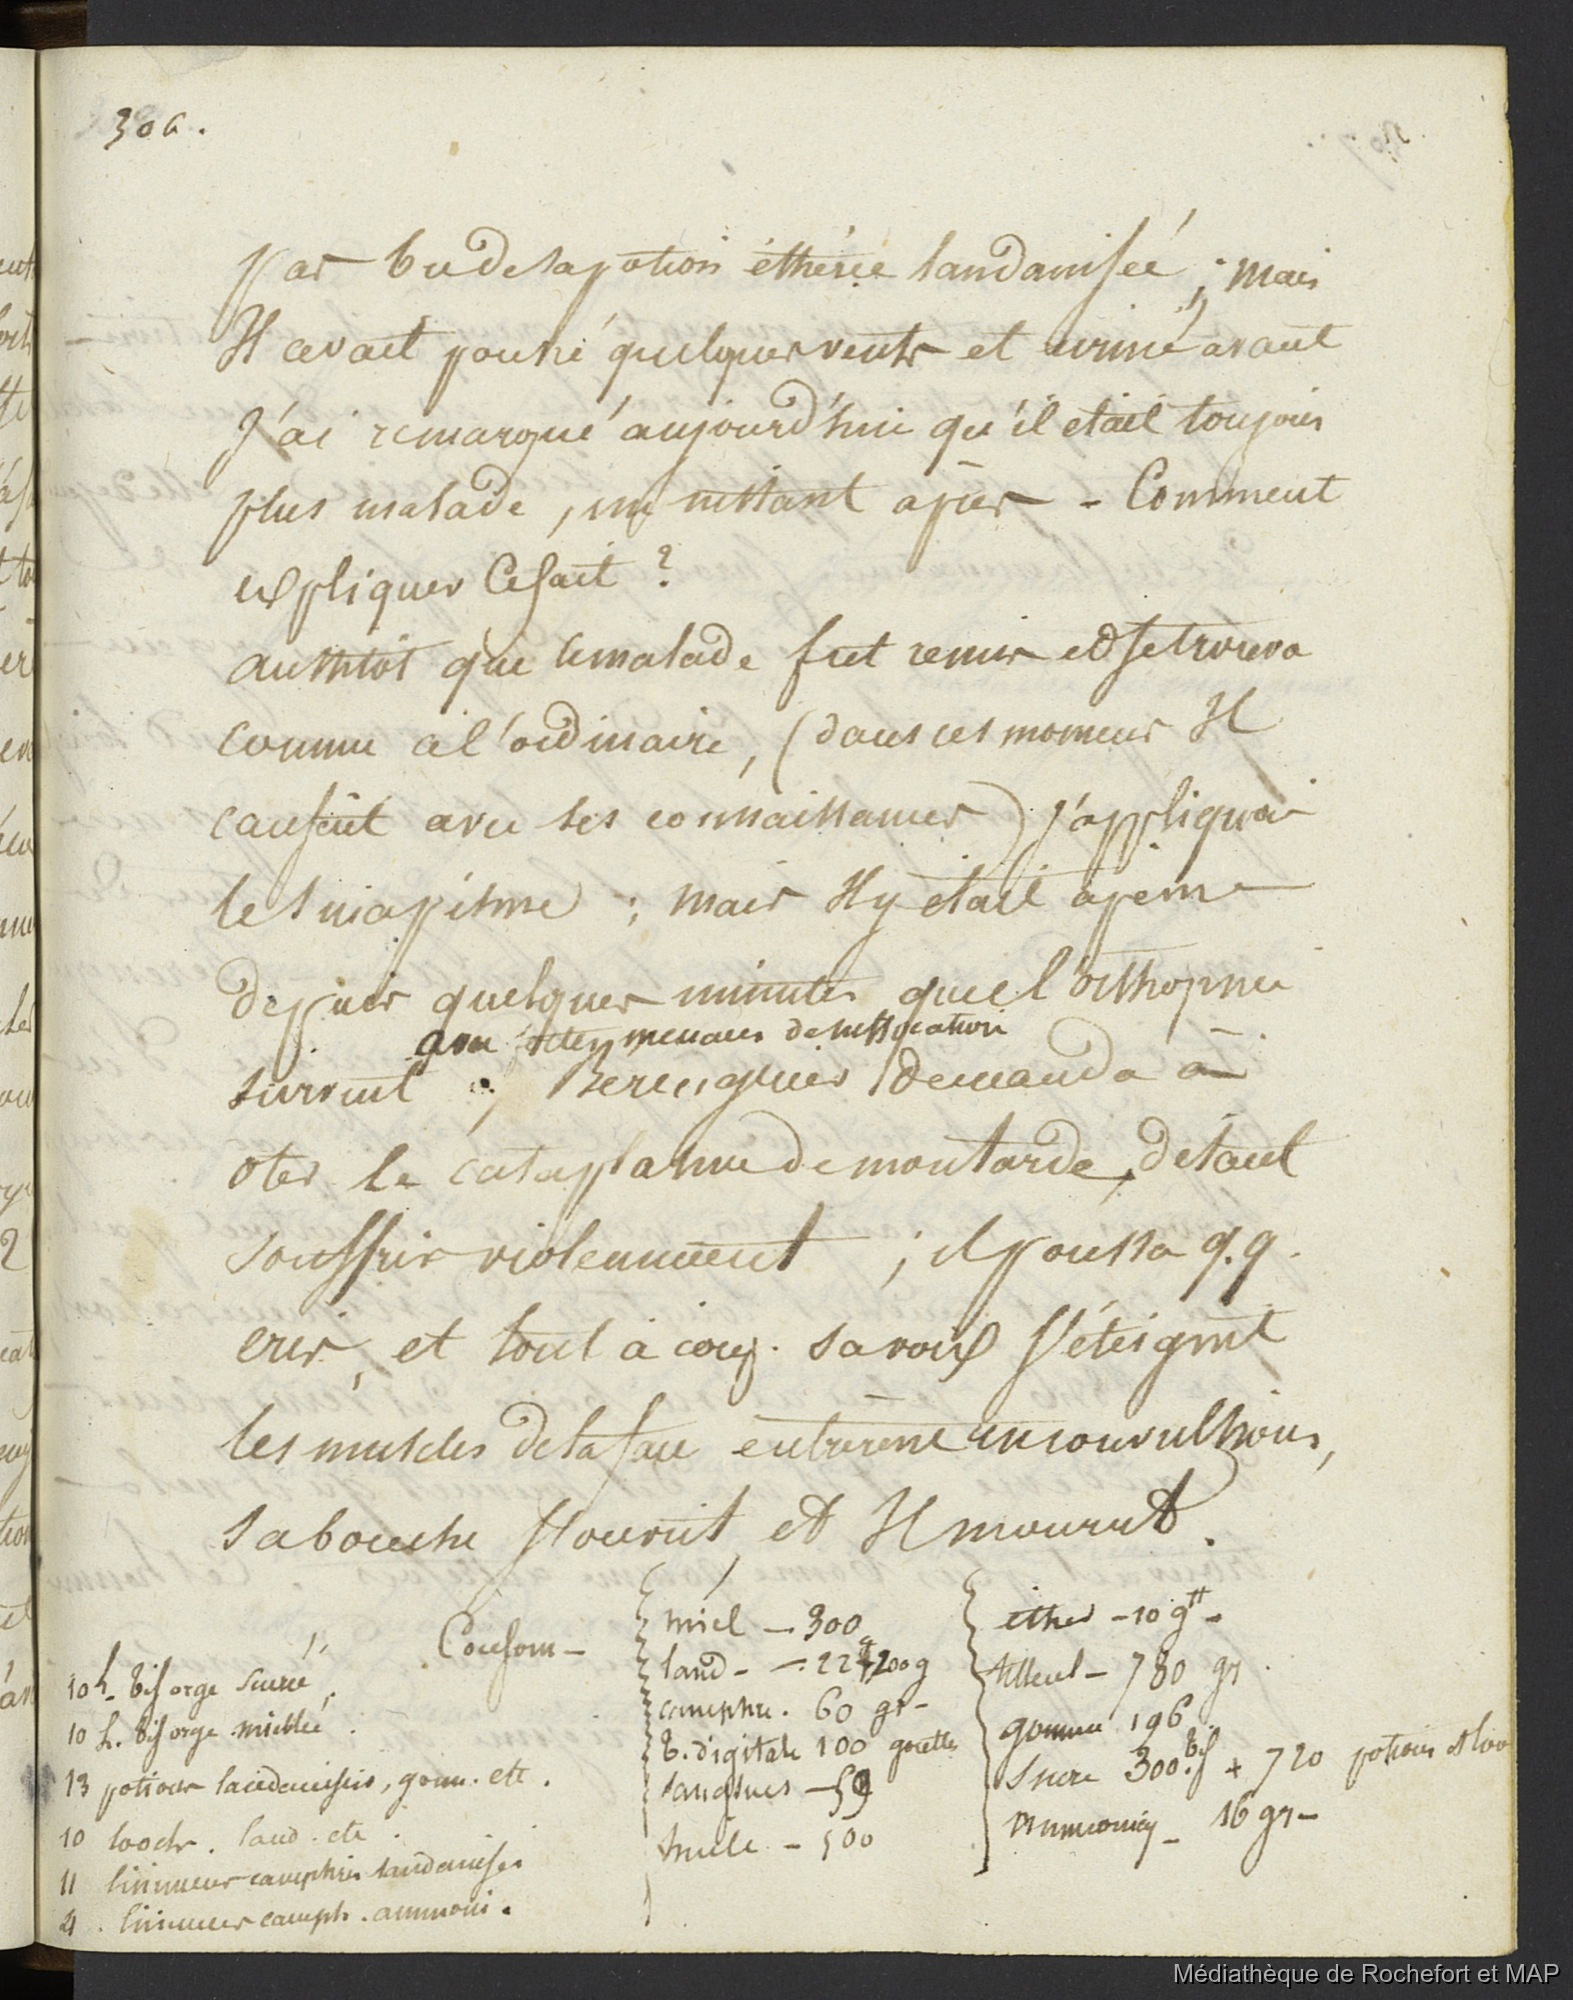 306.
pas bu de sa potion éthérée laudanisée ; mais
Il avait poussé quelques vents et uriné avant
J'ai remarqué aujourd'hui qu'il etait toujours
plus malade, un instant après - Comment
expliquer Ce fait ?
aussitôt que le malade fut remis et se trouva
comme a l'ordinaire, (dans ces momens Il
causait avec ses connaissances) j'appliquai
le sinapisme ; mais Il y était à peine
depuis quelques minutes que l'orthopnée
avec menaces de suffocation
survint ; Berenguier demanda à
oter le cataplasme de moutarde, disant
souffrir violemment ; il poussa q.q.
cris, et tout à coup. sa voix s'éteignit
les muscles de la face entrèrent en convulsions,
sa bouche s'ouvrit, et Il mourut.
Consom -
10 h. tis. orge sucrée
10 h. tis. orge miellée.
13 potions laudanisées, gomm. etc.
10 loochs. laud. etc.
11 linimens camphrés laudanisés
4. linimens camph. ammoni.
miel - 300
laud - 22 + 200 g
camphre. 60 gr -
t. digitale 100 gouttes
sangsues - 59
huile - 500
ether - 10 gtt -
tilleul - 780 gr.
gomme 196.
Sucre 300. tis + 720 potions et loo
ammoniaq - 16 gr -
Médiathèque de Rochefort et MAP